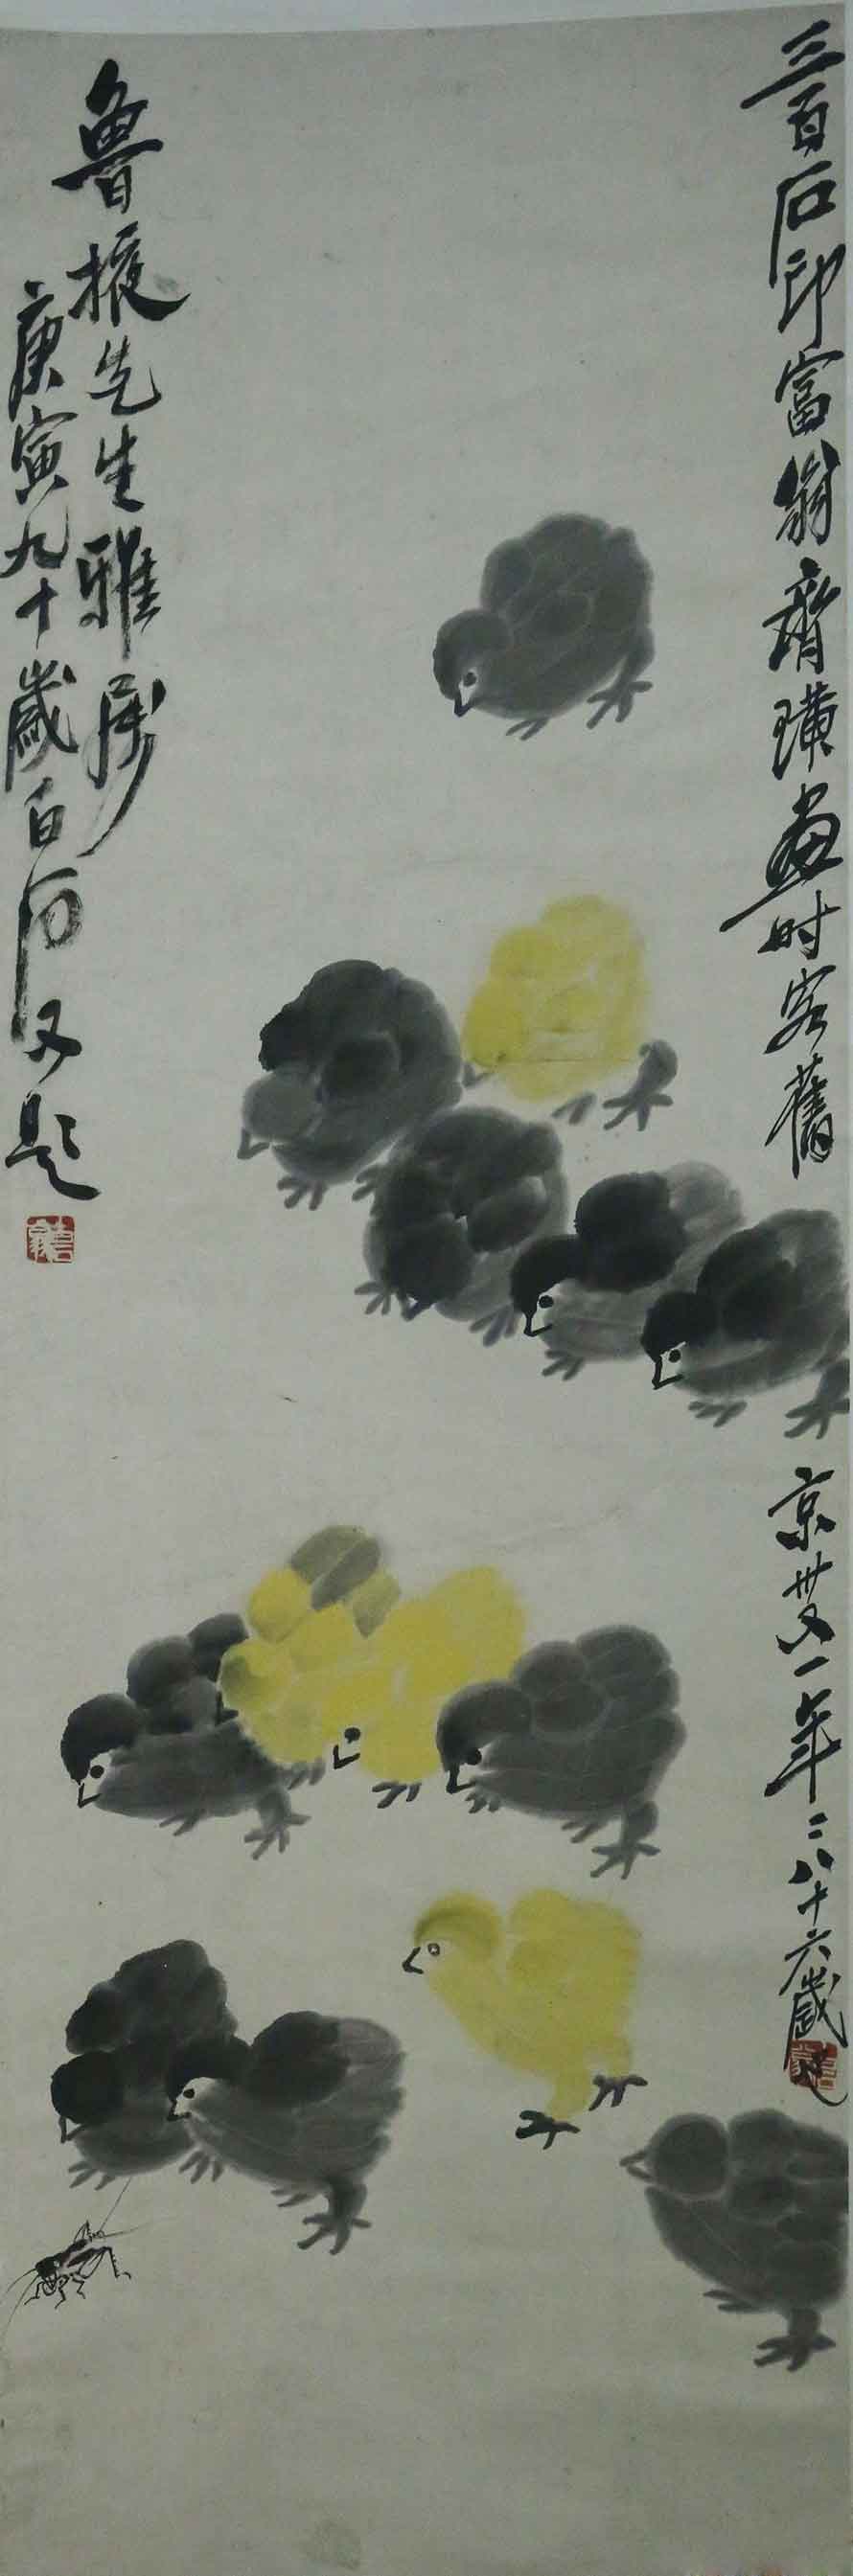 三百石印富翁齊璜画时客舊
京卅又一年二八十六歲
魯掖先生雅屬
庚寅九十歲白石又題